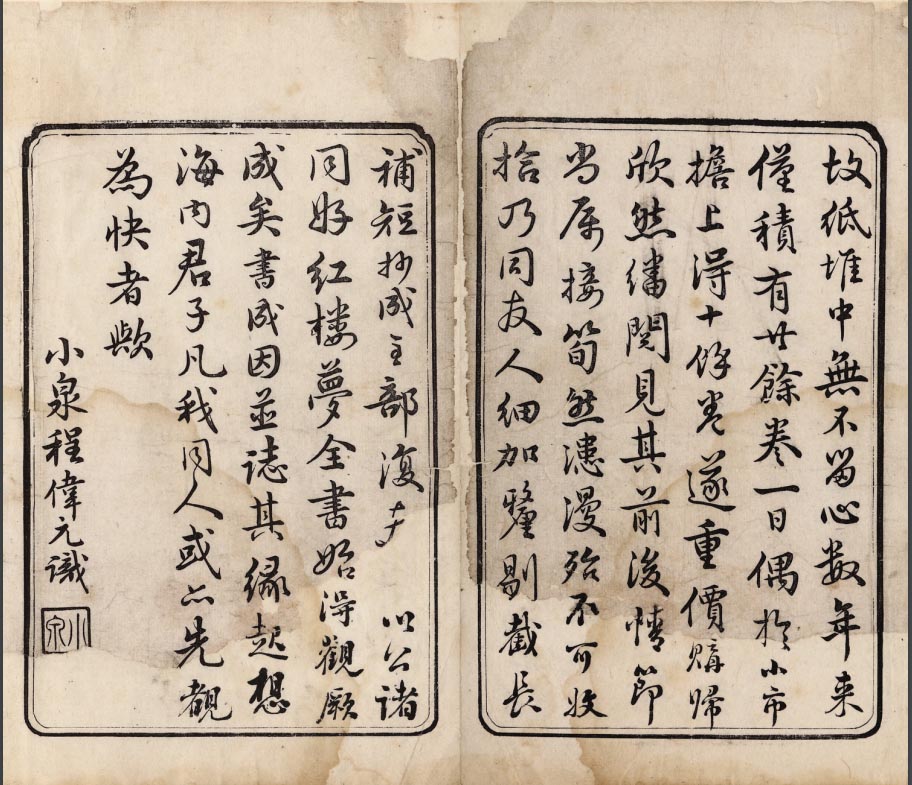 故紙堆中無不留心数年来
僅積有廿餘卷一日偶扵小市
擔上得十餘卷遂重價購歸
欣然繙閱見其前後情節
尚属接筍然漶漫殆不可收
拾乃同友人細加釐剔截長
補短抄成全部復 以公諸
同好紅樓夢全書始得觀厥
成矣書成因並誌其緣起想
海内君子凡我同人或亦先覩
為快者歟
小泉程偉元識
小泉